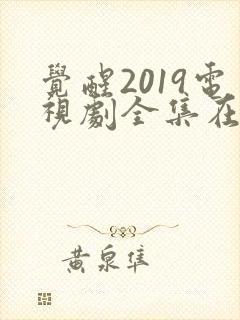 覺醒2019電
視劇全集在
黃泉隼